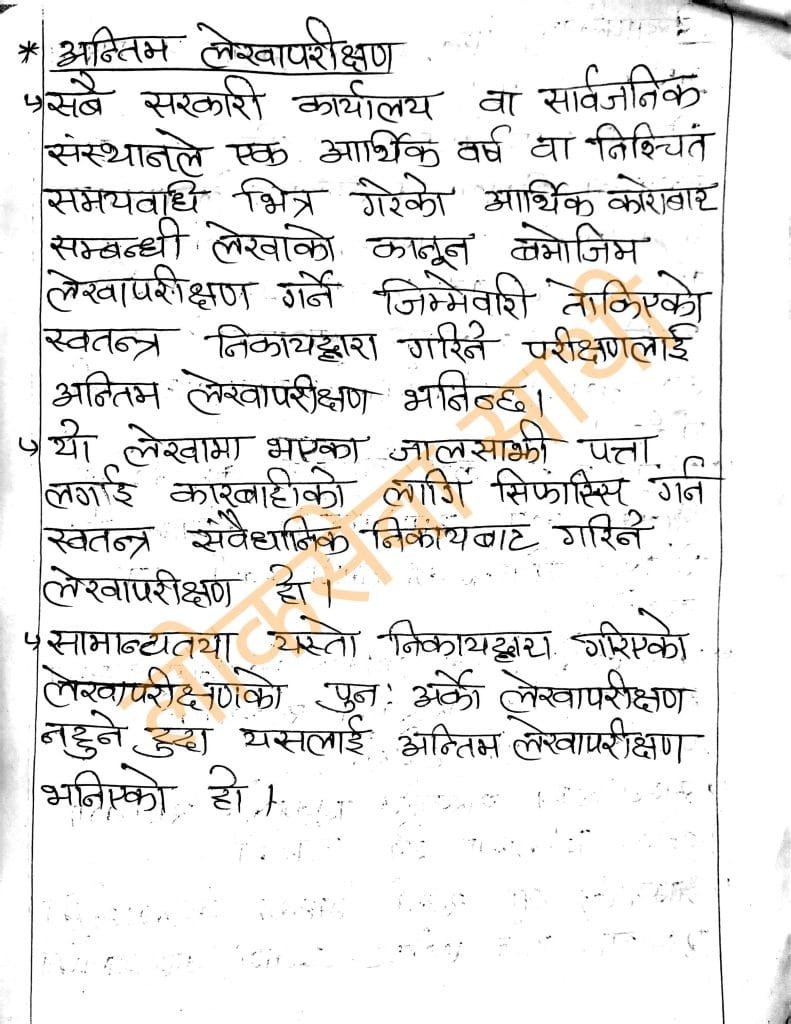 * अन्तिम लेखापरीक्षण
↳ सबै सरकारी कार्यालय वा सार्वजनिक
संस्थानले एक आर्थिक वर्ष वा निश्चित
समयवधि भित्र गरेको आर्थिक कारोबार
सम्बन्धी लेखाको कानून बमोजिम
लेखापरीक्षण गर्ने जिम्मेवारी तोकिएको
स्वतन्त्र निकायद्वारा गरिने परीक्षणलाई
अन्तिम लेखापरीक्षण भनिन्छ।
↳ यो लेखामा भएका जालसाझी पत्ता
लगाई कारबाहीको लागि सिफारिस गर्न
स्वतन्त्र संवैधानिक निकायबाट गरिने
लेखापरीक्षण हो।
↳ सामान्यतया यस्तो निकायद्वारा गरिएको
लेखापरीक्षणको पुन: अर्को लेखापरीक्षण
नहुने हुदा यसलाई अन्तिम लेखापरीक्षण
भनिएको हो।
लोकसेवा साथी